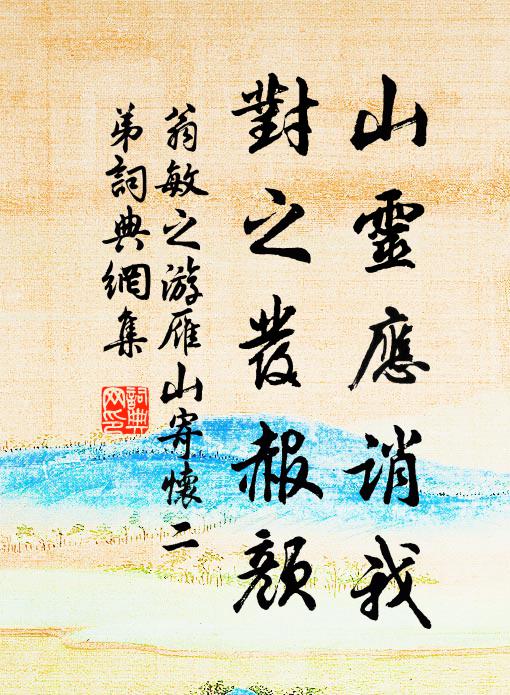 山靈應誚我
對之發赧顏
翁敏之游雁山寄懷二
弟詞典網集
詞典
网印